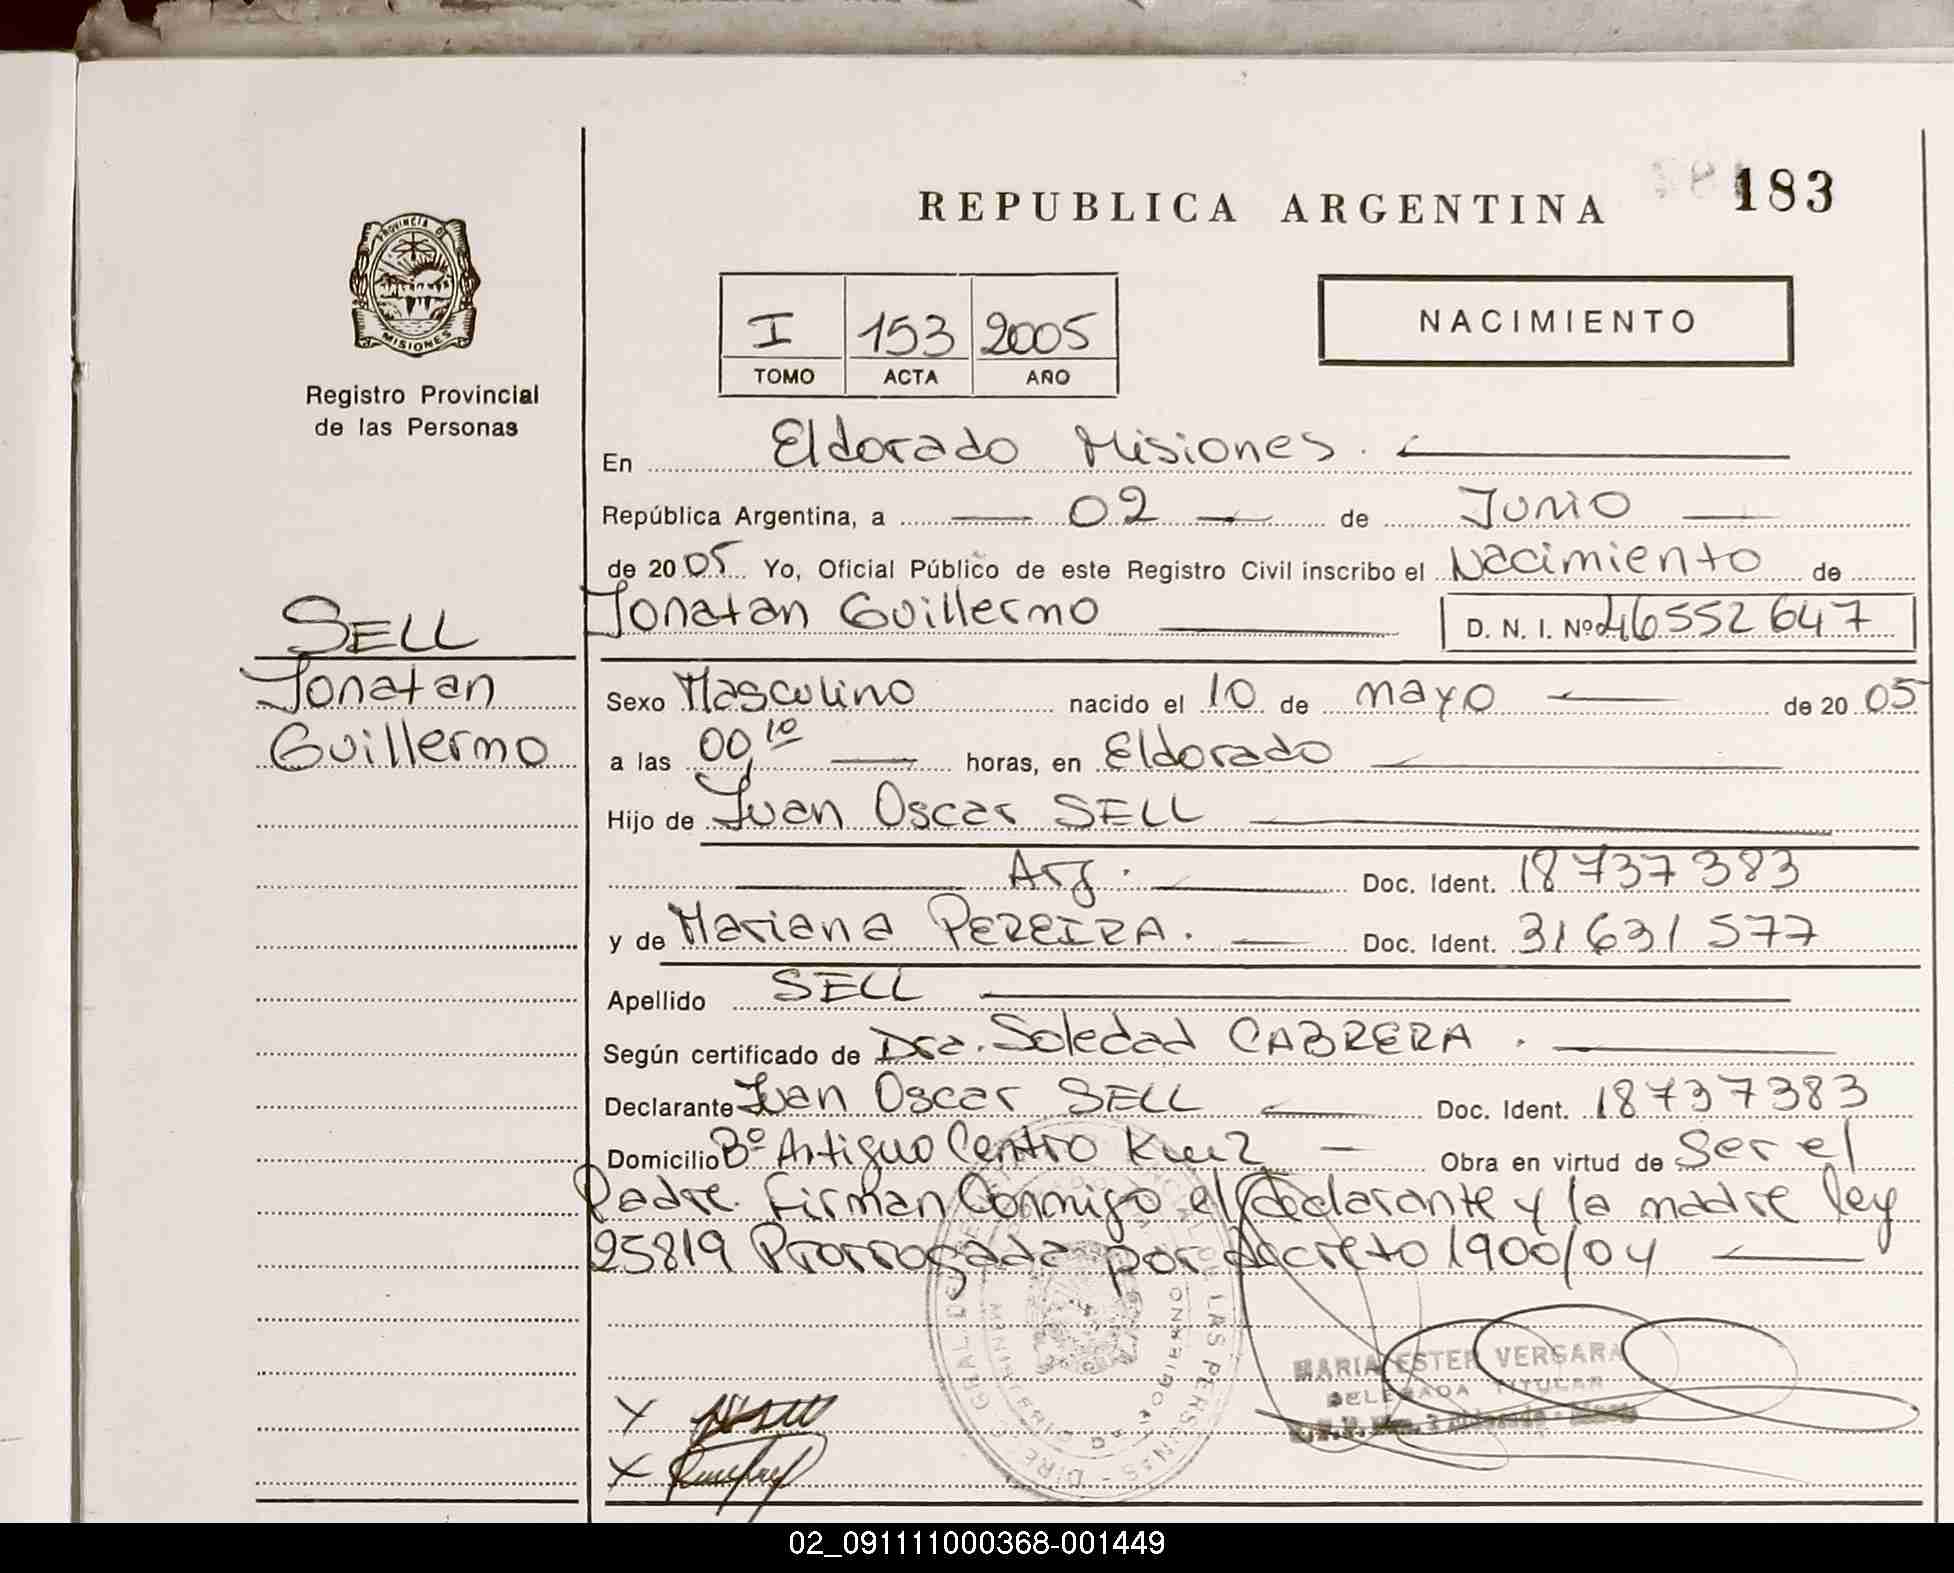 REPUBLICA ARGENTINA
183
PROVINCIA DE
MISIONES
Registro Provincial
de las Personas
I 153 2005
TOMO ACTA AÑO
NACIMIENTO
En Eldorado Misiones.
República Argentina, a 02 de Junio
de 2005 Yo, Oficial Público de este Registro Civil inscribo el Nacimiento de
Jonatan Guillermo D. N. I. Nº 46552647
SELL
Jonatan
Guillermo
Sexo Masculino nacido el 10 de mayo de 2005
a las 00,10 horas, en Eldorado
Hijo de Juan Oscar SELL
Arg. Doc. Ident. 18737383
y de Mariana PEREIRA. Doc. Ident. 31631577
Apellido SELL
Según certificado de Dra. Soledad CABRERA.
Declarante Juan Oscar SELL Doc. Ident. 18737383
Domicilio Bº Antiguo Centro Obra en virtud de Ser el
Padre. Firman Conmigo el declarante y la madre ley
25819 Prorrogada por decreto 1900/04
MARIA ESTER VERGARA
DELEGADA TITULAR
X
X
02_091111000368-001449